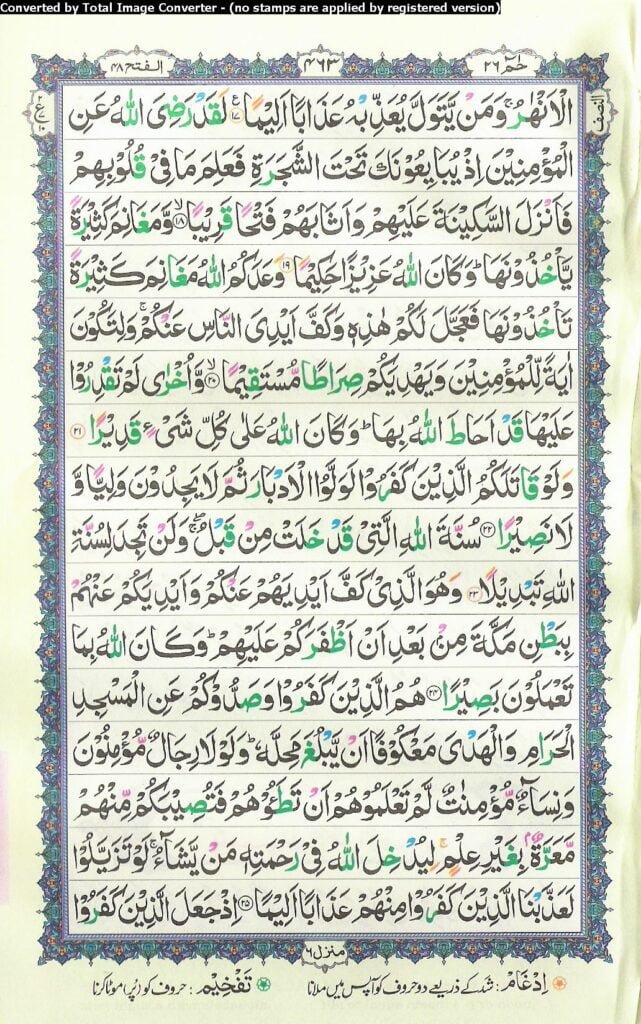 Converted by Total Image Converter - (no stamps are applied by registered version)
حٰمٓ ٢٦
٤٦٣
الفتح ٤٨
الْاَنْهٰرُ ۚ وَمَنْ يَّتَوَلَّ يُعَذِّبْهُ عَذَابًا اَلِيْمًا ۧ ﴿۱۷﴾ لَقَدْ رَضِیَ اللّٰهُ عَنِ
الْمُؤْمِنِيْنَ اِذْ يُبَايِعُوْنَكَ تَحْتَ الشَّجَرَةِ فَعَلِمَ مَا فِیْ قُلُوْبِهِمْ
فَاَنْزَلَ السَّكِيْنَةَ عَلَيْهِمْ وَاَثَابَهُمْ فَتْحًا قَرِيْبًا ۙ ﴿۱۸﴾ وَّمَغَانِمَ كَثِيْرَةً
يَّاْخُذُوْنَهَا ؕ وَكَانَ اللّٰهُ عَزِيْزًا حَكِيْمًا ﴿۱۹﴾ وَعَدَكُمُ اللّٰهُ مَغَانِمَ كَثِيْرَةً
تَاْخُذُوْنَهَا فَعَجَّلَ لَكُمْ هٰذِهٖ وَكَفَّ اَيْدِیَ النَّاسِ عَنْكُمْ ۚ وَلِتَكُوْنَ
اٰيَةً لِّلْمُؤْمِنِيْنَ وَيَهْدِيَكُمْ صِرَاطًا مُّسْتَقِيْمًا ۙ ﴿۲۰﴾ وَّاُخْرٰی لَمْ تَقْدِرُوْا
عَلَيْهَا قَدْ اَحَاطَ اللّٰهُ بِهَا ؕ وَكَانَ اللّٰهُ عَلٰی كُلِّ شَیْءٍ قَدِيْرًا ﴿۲۱﴾
وَلَوْ قَاتَلَكُمُ الَّذِيْنَ كَفَرُوْا لَوَلَّوُا الْاَدْبَارَ ثُمَّ لَا يَجِدُوْنَ وَلِيًّا وَّ
لَا نَصِيْرًا ﴿۲۲﴾ سُنَّةَ اللّٰهِ الَّتِیْ قَدْ خَلَتْ مِنْ قَبْلُ ۖۚ وَلَنْ تَجِدَ لِسُنَّةِ
اللّٰهِ تَبْدِيْلًا ﴿۲۳﴾ وَهُوَ الَّذِیْ كَفَّ اَيْدِيَهُمْ عَنْكُمْ وَاَيْدِيَكُمْ عَنْهُمْ
بِبَطْنِ مَكَّةَ مِنْۢ بَعْدِ اَنْ اَظْفَرَكُمْ عَلَيْهِمْ ؕ وَكَانَ اللّٰهُ بِمَا
تَعْمَلُوْنَ بَصِيْرًا ﴿۲۴﴾ هُمُ الَّذِيْنَ كَفَرُوْا وَصَدُّوْكُمْ عَنِ الْمَسْجِدِ
الْحَرَامِ وَالْهَدْیَ مَعْكُوْفًا اَنْ يَّبْلُغَ مَحِلَّهٗ ؕ وَلَوْلَا رِجَالٌ مُّؤْمِنُوْنَ
وَنِسَآءٌ مُّؤْمِنٰتٌ لَّمْ تَعْلَمُوْهُمْ اَنْ تَطَـُٔوْهُمْ فَتُصِيْبَكُمْ مِّنْهُمْ
مَّعَرَّةٌۢ بِغَيْرِ عِلْمٍ ۚ لِيُدْخِلَ اللّٰهُ فِیْ رَحْمَتِهٖ مَنْ يَّشَآءُ ۚ لَوْ تَزَيَّلُوْا
لَعَذَّبْنَا الَّذِيْنَ كَفَرُوْا مِنْهُمْ عَذَابًا اَلِيْمًا ﴿۲۵﴾ اِذْ جَعَلَ الَّذِيْنَ كَفَرُوا
منزل ٦
اِدْغَامْ : شد کے ذریعے دو حروف کو آپس میں ملانا
تَفْخِيْم : حروف کو (پُر) موٹا کرنا